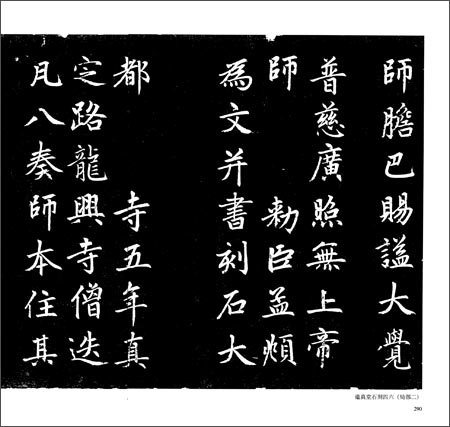 師膽巴賜謚大覺
普慈廣照無上帝
師 勅臣孟頫
為文并書刻石大
都 寺五年真
定路龍興寺僧迭
凡八奏師本住其
蘊真堂石刻四六（局部二）
290